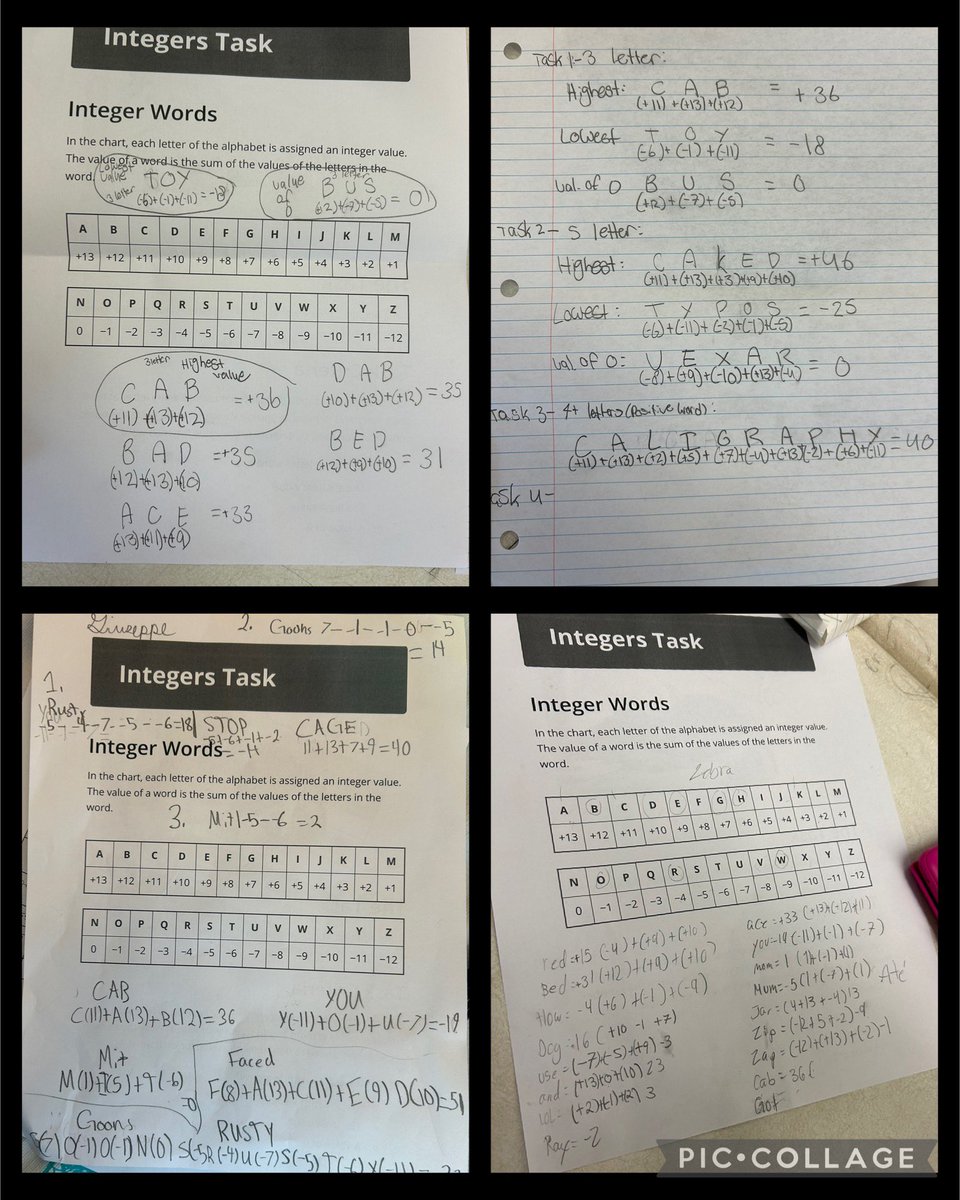 Integers Task
Integer Words
In the chart, each letter of the alphabet is assigned an integer value.
The value of a word is the sum of the values of the letters in the
word.
Lowest value 3 letter
TOY
(-6)+(-1)+(-11)=-18
value of 0
3 letter
B U S
(+2)+(-7)+(-5) = 0
A B C D E F G H I J K L M
+13 +12 +11 +10 +9 +8 +7 +6 +5 +4 +3 +2 +1
N O P Q R S T U V W X Y Z
0 −1 −2 −3 −4 −5 −6 −7 −8 −9 −10 −11 −12
3 letter Highest value
C A B = +36
(+11) +(+13)+(+12)
D A B
(+10)+(+13)+(+12) = 35
B A D =+35
(+12)+(+13)+(+10)
B E D
(+12)+(+9)+(+10) = 31
A C E =+33
(+13)+(+11)+(+9)
Task 1:-3 letter:
Highest: C A B = +36
(+11) +(+13)+(+12)
Lowest T O Y = -18
(-6)+(-1)+(-11)
Val. of 0 B U S = 0
(+12)+(-7)+(-5)
Task 2- 5 letter:
Highest: C A K E D =+46
(+11)+(+13)+(+3)+(+9)+(+10)
Lowest: T Y P O S = -25
(-6)+(-11)+(-2)+(-1)+(-5)
Val of 0: V E X A R = 0
(-8)+(+9)+(-10)+(+13)+(-4)
Task 3- 4+ letters (Positive word):
C A L I G R A P H Y = 40
(+11)+(+13)+(+2)+(+5)+(+7)+(-4)+(+13)(-2)+(+6)+(-11)
ask 4-
Giuseppe
2. Goons 7--1--1-0--5
= 14
Integers Task
1.
Rusty
STOP
CAGED
11+13+7+9=40
Integer Words
In the chart, each letter of the alphabet is assigned an integer value.
The value of a word is the sum of the values of the letters in the
word.
3. Mit 1-5-6 =2
A B C D E F G H I J K L M
+13 +12 +11 +10 +9 +8 +7 +6 +5 +4 +3 +2 +1
N O P Q R S T U V W X Y Z
0 −1 −2 −3 −4 −5 −6 −7 −8 −9 −10 −11 −12
CAB
C(11)+A(13)+B(12)=36
YOU
Y(-11)+O(-1)+U(-7)=-19
Mit
M(1)+I(5)+T(-6)
=0
Faced
F(8)+A(13)+C(11)+E(9) D(10)=51
Goons
O(-1)O(-1)N(0) S(-5
RUSTY
R(-4)U(-7)S(-5)T(-6)Y(-11)=
Integers Task
Integer Words
In the chart, each letter of the alphabet is assigned an integer value.
The value of a word is the sum of the values of the letters in the
word.
Zebra
A B C D E F G H I J K L M
+13 +12 +11 +10 +9 +8 +7 +6 +5 +4 +3 +2 +1
N O P Q R S T U V W X Y Z
0 −1 −2 −3 −4 −5 −6 −7 −8 −9 −10 −11 −12
red=+15 (-4)+(+9)+(+10)
Bed=+31 (+12)+(+9)+(+10)
How = -4 (+6)+(-1)+(-9)
Dog=16 (+10 -1 +7)
use = (-7)+(-5)+(+9) -3
and = (+13)+0+(10) 23
lol = (+2)+(-1)+(2) 3
Ray= -2
ace=+33 (+13)+(+12)+(11)
you=-19 (-11)+(-1)+(-7)
mom= 1 (1)+(-1)+(1)
Mum=-5 (1+(-7)+(1)
Jar= (4+13+-4) 13
Zip= (-12+5+-2)-9
Zap= (-12)+(+13)+(-2)-1
Cab = 36 (
Got
Ate
PIC•COLLAGE